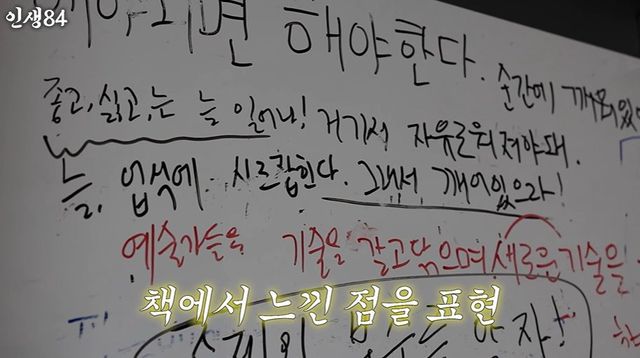 인생84
해야한다.
순간에 깨어있
좋고, 싫고, 는 늘 일어나! 거기서 자유로워져야돼.
늘, 업식에 사로잡힌다. 그래서 깨어있으라!
예술가들은 기술을 갈고닦으며 새로운 기술을
책에서 느낀 점을 표현